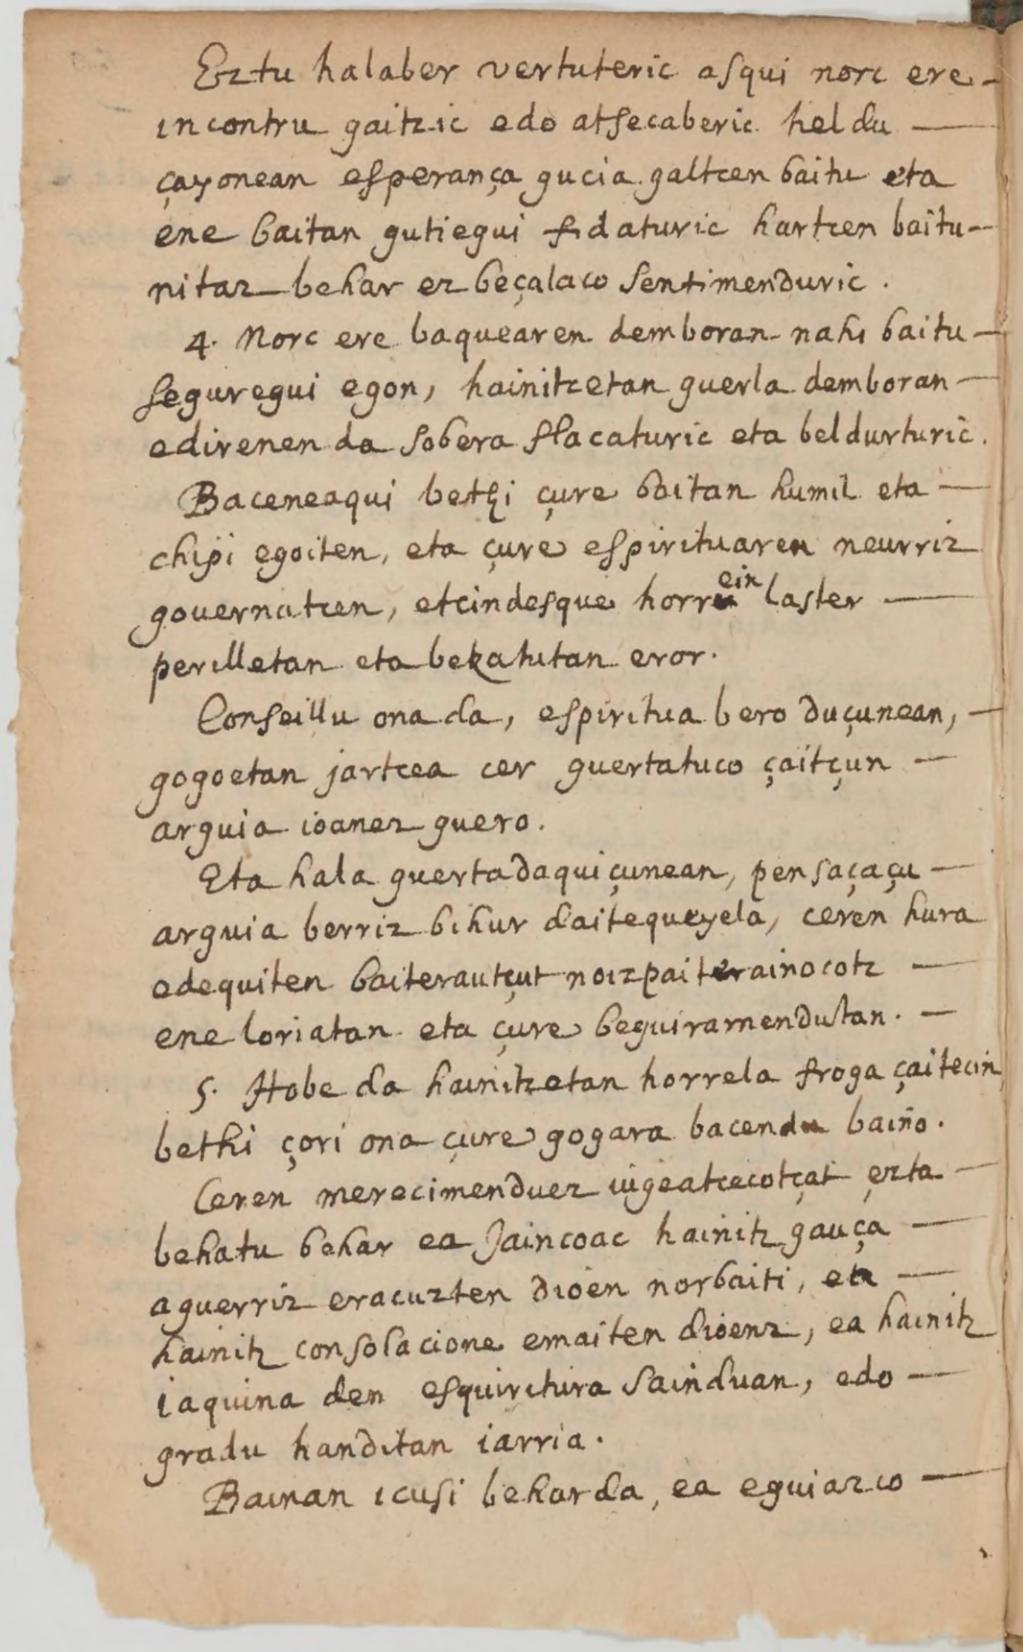 Eztu halaber vertuteric asqui norc ere —
incontru gaitzic edo atsecaberic heldu —
çayonean esperança gucia galtcen baitu eta
ene baitan gutiegui fidaturic hartcen baitu —
nitaz behar ez beçalaco sentimenduric.
4. Norc ere baquearen demboran nahi baitu —
seguregui egon, hainitzetan guerla demboran —
edirenen da sobera flacaturic eta beldurturic.
Baceneaqui bethi çure baitan humil eta —
chipi egoiten, eta çure espirituaren neurriz
governatcen, etcindesque horrein laster —
perilletan eta bekatutan eror.
Conseillu ona da, espiritua bero duçunean, —
gogoetan jartcea cer guertatuco çaitçun —
arguia ioanez guero.
Eta hala guerta daquiçunean, pensaçaçu —
arguia berriz bihur daitequeyela, ceren hura
edequiten baiterautçut noizpaiterainocotz —
ene loriatan eta çure beguiramendutan. —
5. Hobe da hainitzetan horrela froga çaitecin
bethi çori ona çure gogara bacendu baiño.
Ceren merecimenduez iugeatcecotçat ezta —
behatu behar ea Jaincoac hainitz gauça —
aguerriz eracuzten dioen norbaiti, eta —
hainitz consolacione emaiten dioenz, ea hainitz
iaquina den esquiritura sainduan, edo —
gradu handitan iarria.
Bainan icusi behar da, ea eguiazco —